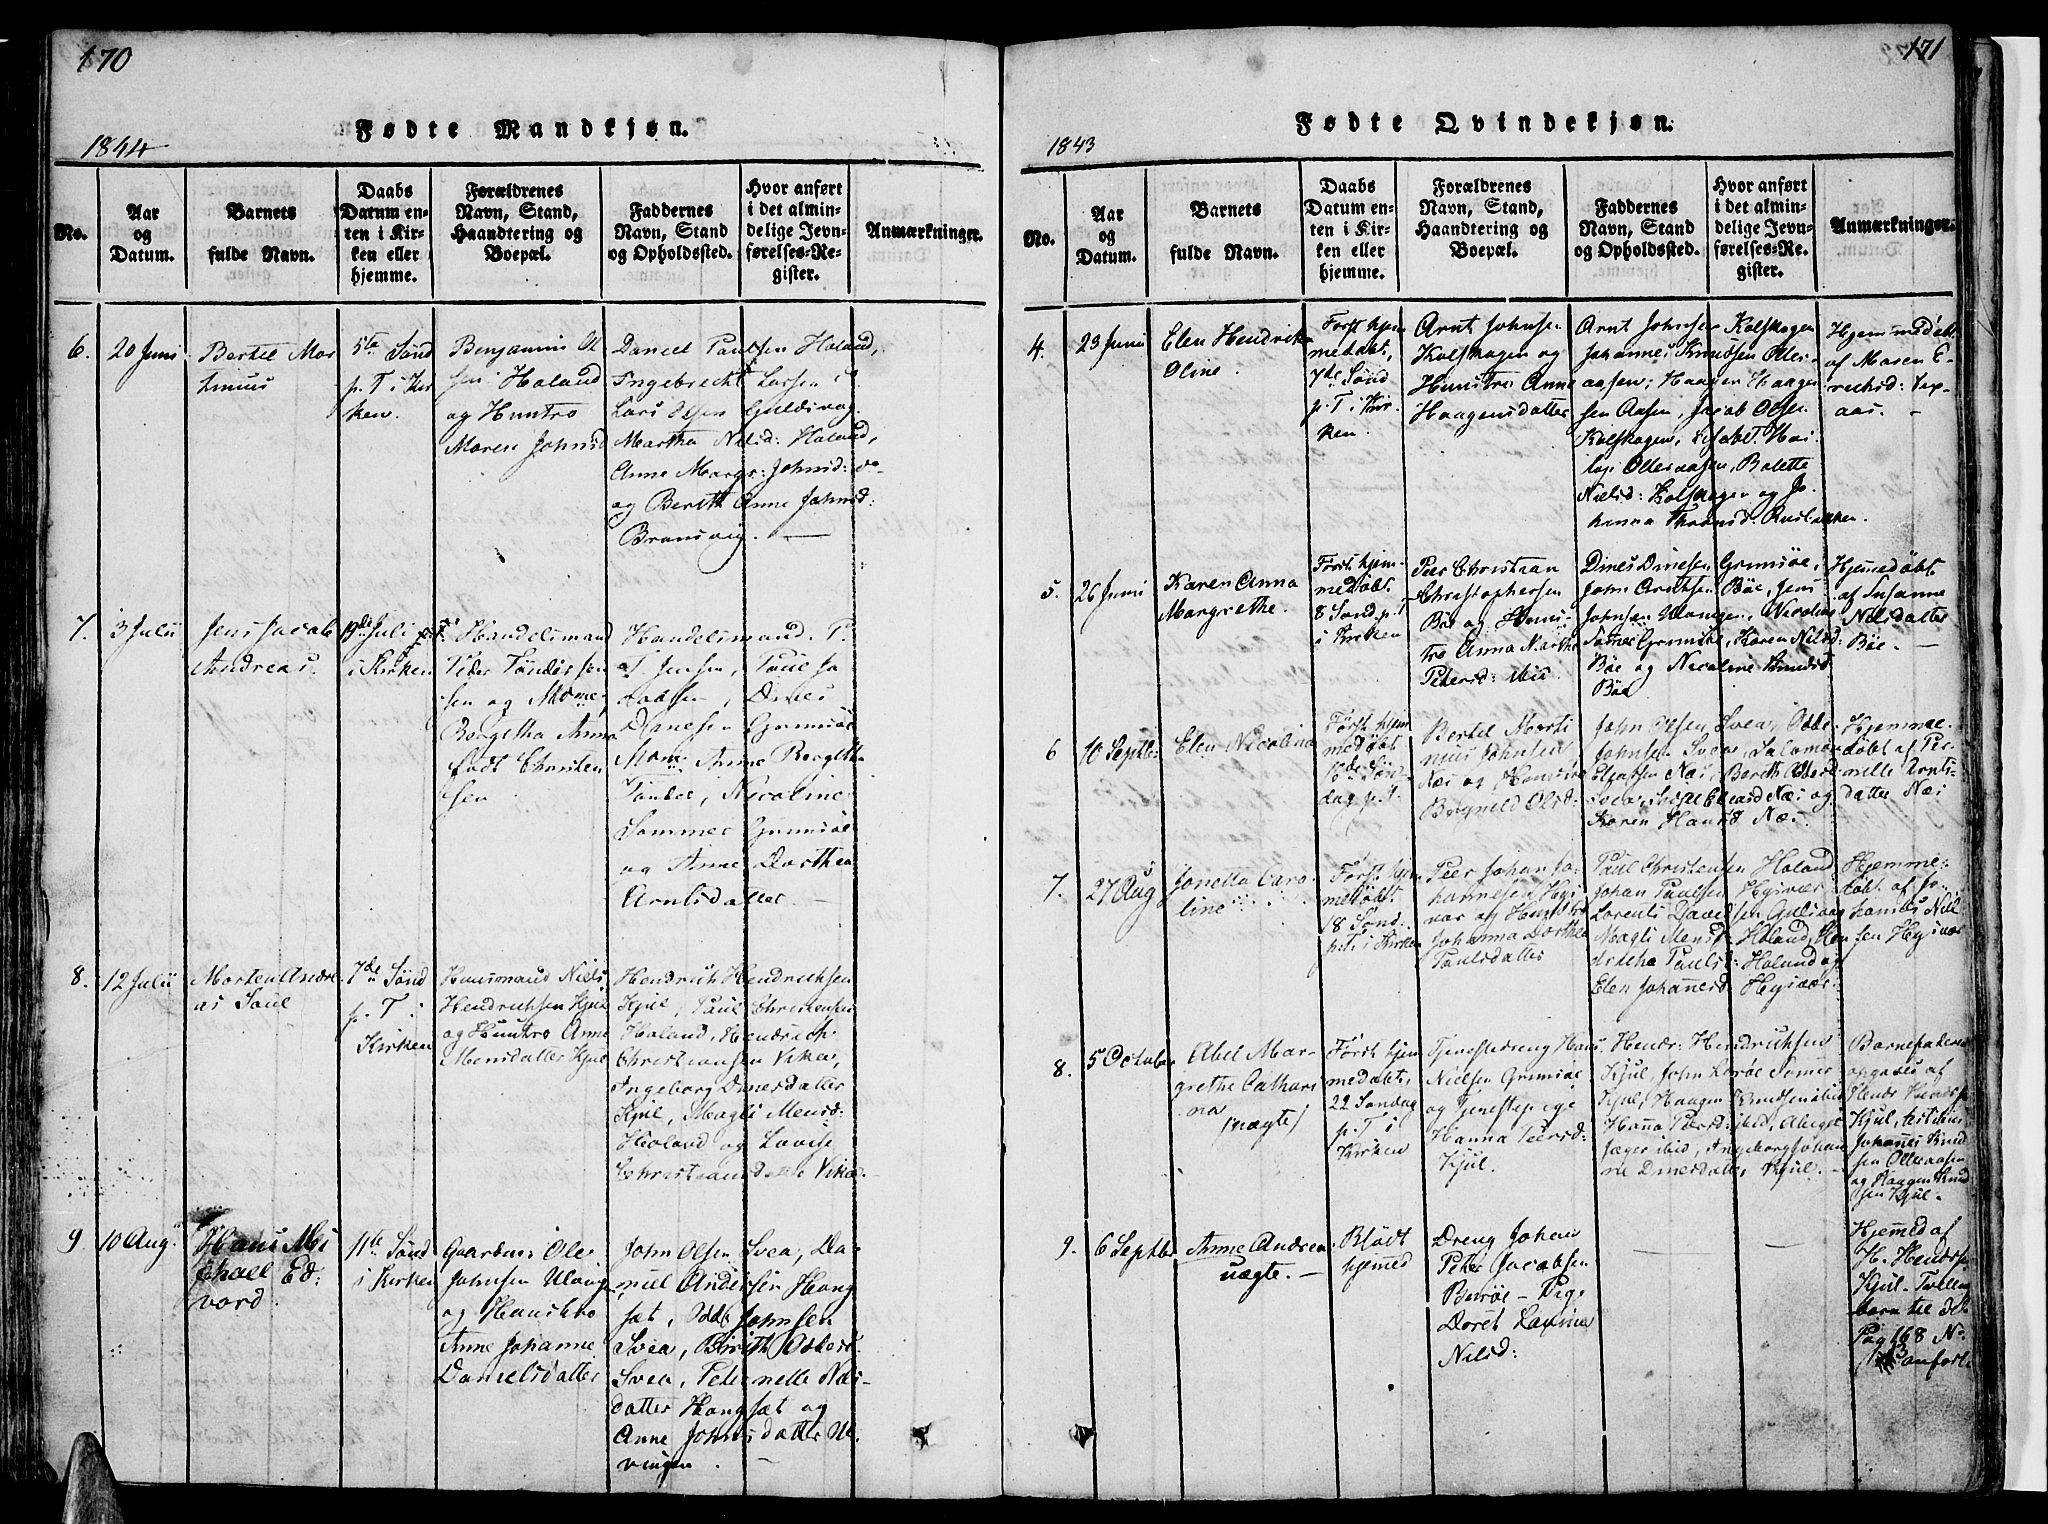 170
Fødte Mandkjøn.
1844
No.
Aar
og
Datum.
Barnets
fulde Navn.
Daabs
Datum en-
ten i Kir-
ken eller
hjemme.
Forældrenes
Navn, Stand,
Haandtering og
Boepæl.
Faddernes
Navn, Stand
og Opholdssted.
Hvor anført
i det almin-
delige Jevn-
førelses-Re-
gister.
Anmærkninger.
6.
20 Juni
Bertel Mor
tinius
5te Sønd
p. T i Kir
ken.
Benjamin Ol
sen Holand
og Hustro
Maren Johnsd
Daniel Paulsen Holand,
Ingebrecht Larsen
Lars Olsen Guldsvog
Martha Nilsd: Holand,
Anne Margr: Johnsd: do
og Bereth Anne Johnsd:
Bransvig.
7.
3 Julii
Jens Jacob
Andreas.
19de Juli
i Kirken
Handelsmand
Peder
sen og Mome
Borgitha Anna
født Christen
sen
Handelsmand. P.
Jensen, Poul Ja
cobsen, Dines
Dinesen Grimsøe
Mom: Anne Borgitha
Tønder, Nicoline
Sommer Grimsøe
og Anne Dorthea
Arntsdatter.
8.
12 Julii
Morten Andre
as Paul
7de Sønd
p. T i
Kirken
Huusmand Niels
Hendrichsen Kjul
og Hustro Anne
Mensdatter Kjul
Hendrich Hendrichsen
Kjul, Paul Christensen
Holand, Hendrich
Christiansen Vika,
Ingeborg Dinesdatter
Kjul, Magli Mensd:
Holand og Lovise
Christiansdatter Vika.
9
10 Aug.
Hans Mi
chael Ed:
vard.
11te Sønd
i Kirken
Gaardm: Ole
Johnsen Ulvingen
og Hustro
Anne Johanne
Danielsdatter
John Olsen Svea, Da-
niel Andersen Hong
sæt, Odde Johnsen
Svea, Birith Oddesd.
Svea, Pernelle Nils-
datter Hongsæt og
Anne Johnsdatter Ul-
vingen.
171
Fødte Qvindekjøn.
1843
No.
Aar
og
Datum.
Barnets
fulde Navn.
Daabs
Datum en-
ten i Kir-
ken eller
hjemme.
Forældrenes
Navn, Stand,
Haandtering og
Boepæl.
Faddernes
Navn, Stand
og Opholdssted.
Hvor anført
i det almin-
delige Jevn-
førelses-Re-
gister.
Anmærkninger.
4.
23 Juni
Elen Hendrikke
Oline.
Først hjem
medøbt,
7de Sønd
p. T i Kir-
ken.
Arnt Johnsen
Kolskogen og
Hunstro Anne
Haagensdatter
Arnt Johnsen Kolskogen
Johannes Knudsen Oller-
aasen; Haagen Haagen
sen Aasen, Jacob Olsen
Kolskogen, Lisabet
Olleraasen, Bolette
Nielsd: Kolskogen og Jo
hanna
Hjemmedøbt
af Maren E-
richsd:
aas. -
5.
26 Juni
Karen Anna
Margrethe.
Først hjem-
medøbt
8 Sønd p. T
i Kirken
Peer Christian
Christophersen
Bøe og Huus
tro Anna Marthe
Petersd:
Dines Dinesen Grimsøe,
John Bøe, Jens
Johnsen Ulvingen, Nicoline
Grimsøe, Karen Nilsd:
Bøe og Nicoline
Bøe
Hjemmedøbt
af Susanne
Nilsdatter
Bøe. -
6
10 Septbr
Elen Nicolina
Først hjem
medøbt
16de Søn-
dag p. T.
Bertel Morti
nius Johnsen
Næs og Hunstro
Bergnild Olsd:
John Olsen Svea, Odde
Johnsen Svea, Salomon
Eliassen Næs, Bereth Odesd
Svea, Næs og
Karen Hansd Næs.
Hjemme-
døbt af Per-
nille Arnts-
datter Næs
7.
27 Aug
Jonetta Caro-
line
Først hjem
medøbt.
18 Sønd.
p. T. i Kirken
Peer Johan Jo-
hannesen Heys
vær og Hunstro
Johanna Dorthea
Paulsdatter
Paul Christensen Holand
Johan Paulsen Heysvær,
Lorents Davidsen Gulsvag
Magli Mensd: Holand,
Paulsd: Holand og
Elen Johannesd Heysvær.
Hjemme-
døbt af Jo-
hannes Niel-
sen Heysvær
8.
5 October
Abel Mar-
grethe Cathari
na
/uægte/
Først hjem
medøbt,
22 Søndag
p. T i
Kirken
Tjenestedreng Hans
Nielsen Grimsøe
og Tjenestepige
Hanna Peersd:
Kjul.
Hendr: Hendrichsen
Kjul, John
Kjul, Haagen Knudsen ibid
Hanna Peersd: ibid, Abigel
Jæger ibid, Ingeborg Johan
ne Dinesdatter, Kjul. -
Barnefaderen
opgives af
Hendr Hendrs:
Kjul,
Johannes Knud
sen Olleraasen
og Haagen Knud
sen Kjul.
9.
6 Septbr
Anne Andrea
uægte. -
Blødt
hjemed
Dreng Johan
Peter Jacobsen
Burøe - Pige
Doret Lavina
Nilsd:
Hjemed af
H. Hendrs:
Kjul - Tvilling
barn til det
Pag 168 No.
13 anførte